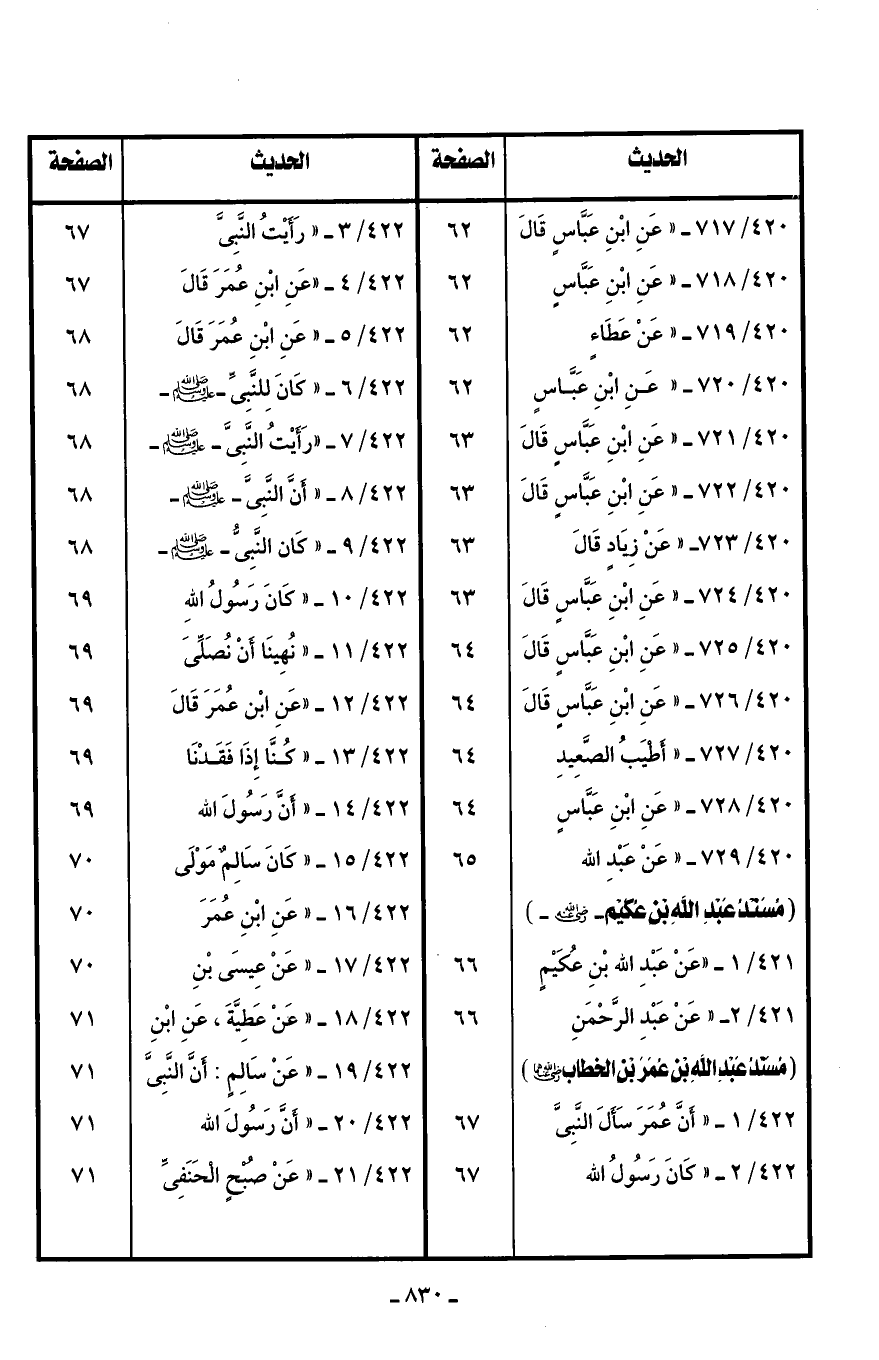 الحديث الصفحة الحديث الصفحة
٧١٧/٤٢٠ ـ « عَنِ ابْنِ عَبَّاسٍ قَالَ ٦٢
٧١٨/٤٢٠ ـ « عَنِ ابْنِ عَبَّاسٍ ٦٢
٧١٩/٤٢٠ ـ « عَنْ عَطَاءٍ ٦٢
٧٢٠/٤٢٠ ـ « عَـنِ ابْنِ عَبَّـاسٍ ٦٢
٧٢١/٤٢٠ ـ « عَنِ ابْنِ عَبَّاسٍ قَالَ ٦٣
٧٢٢/٤٢٠ ـ « عَنِ ابْنِ عَبَّاسٍ قَالَ ٦٣
٧٢٣/٤٢٠ـ « عَنْ زِيَادٍ قَالَ ٦٣
٧٢٤/٤٢٠ ـ « عَنِ ابْنِ عَبَّاسٍ قَالَ ٦٣
٧٢٥/٤٢٠ ـ « عَنِ ابْنِ عَبَّاسٍ قَالَ ٦٤
٧٢٦/٤٢٠ ـ « عَنِ ابْنِ عَبَّاسٍ قَالَ ٦٤
٧٢٧/٤٢٠ ـ « أَطْيَبُ الصَّعِيدِ ٦٤
٧٢٨/٤٢٠ ـ « عَنِ ابْنِ عَبَّاسٍ ٦٤
٧٢٩/٤٢٠ ـ « عَنْ عَبْدِ الله ٦٥
( مُسْنَدُ عَبْدِ اللَّهِ بْنِ عُكَيْمٍ ـ رضي الله عنه ـ )
١/٤٢١ ـ «عَنْ عَبْدِ الله بْنِ عُكَيْمٍ ٦٦
٢/٤٢١ـ « عَنْ عَبْدِ الرَّحْمَنِ ٦٦
( مُسْنَدُ عَبْدِ اللَّهِ بْنِ عُمَرَ بْنِ الخطاب رضي الله عنهما )
١/٤٢٢ ـ « أَنَّ عُمَرَ سَأَلَ النَّبِىَّ ٦٧
٢/٤٢٢ ـ « كَانَ رَسُولُ الله ٦٧
٣/٤٢٢ ـ « رَأَيْتُ النَّبِىَّ ٦٧
٤/٤٢٢ ـ «عَنِ ابْنِ عُمَرَ قَالَ ٦٧
٥/٤٢٢ ـ « عَنِ ابْنِ عُمَرَ قَالَ ٦٨
٦/٤٢٢ ـ « كَانَ لِلنَّبِىِّ ـ ﷺ ـ ٦٨
٧/٤٢٢ ـ «رَأَيْتُ النَّبِىَّ ـ ﷺ ـ ٦٨
٨/٤٢٢ ـ « أَنَّ النَّبِىَّ ـ ﷺ ـ ٦٨
٩/٤٢٢ ـ « كَان النَّبِىُّ ـ ﷺ ـ ٦٨
١٠/٤٢٢ ـ « كَانَ رَسُولُ اللهِ ٦٩
١١/٤٢٢ ـ « نُهِينَا أَنْ نُصَلِّىَ ٦٩
١٢/٤٢٢ ـ «عَنِ ابْنِ عُمَرَ قَالَ ٦٩
١٣/٤٢٢ ـ « كُـنَّا إِذَا فَقَـدْنَا ٦٩
١٤/٤٢٢ ـ « أَنَّ رَسُولَ الله ٦٩
١٥/٤٢٢ ـ « كَانَ سَالِمٌ مَوْلَى ٧٠
١٦/٤٢٢ ـ « عَنِ ابْنِ عُمَرَ ٧٠
١٧/٤٢٢ ـ « عَنْ عِيسَى بْنِ ٧٠
١٨/٤٢٢ ـ « عَنْ عَطِيَّةَ ، عَنِ ابْنِ ٧١
١٩/٤٢٢ ـ « عَنْ سَالِمٍ : أَنَّ النَّبِىَّ ٧١
٢٠/٤٢٢ ـ « أَنَّ رَسُولَ الله ٧١
٢١/٤٢٢ ـ « عَنْ صُبْحٍ الْحَنَفِىِّ ٧١
ـ ٨٣٠ ـ